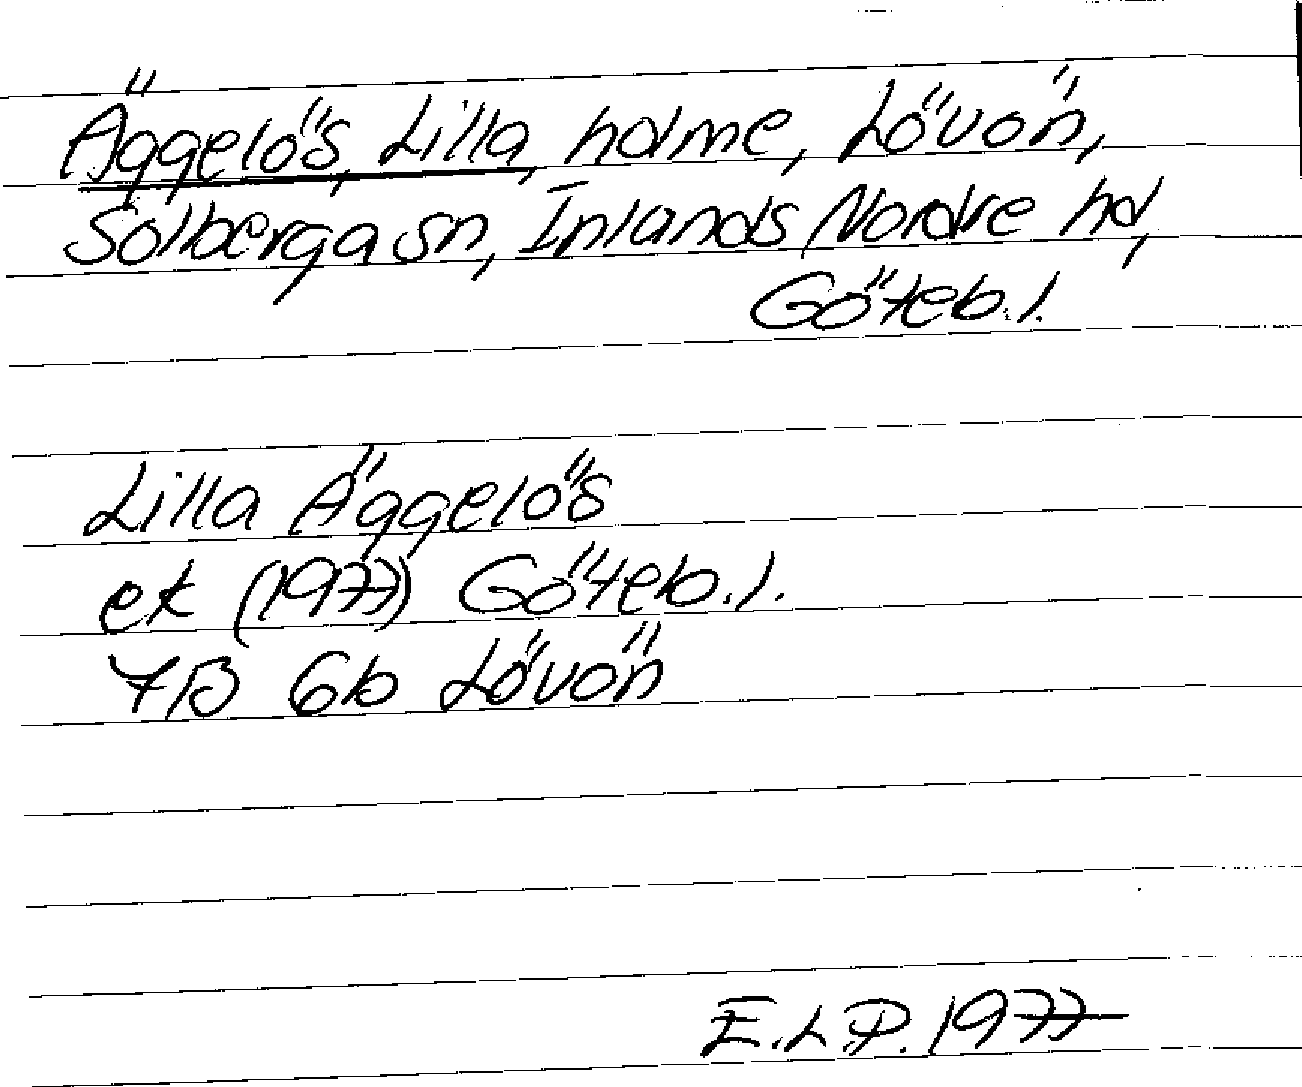 Äggelös, Lilla, holme, Lövön,
Solberga sn, Inlands Nordre hd,
Göteb. l.
Lilla Äggelös
ek (1977) Göteb. l.
7B 6b Lövön
E.L.P. 1977